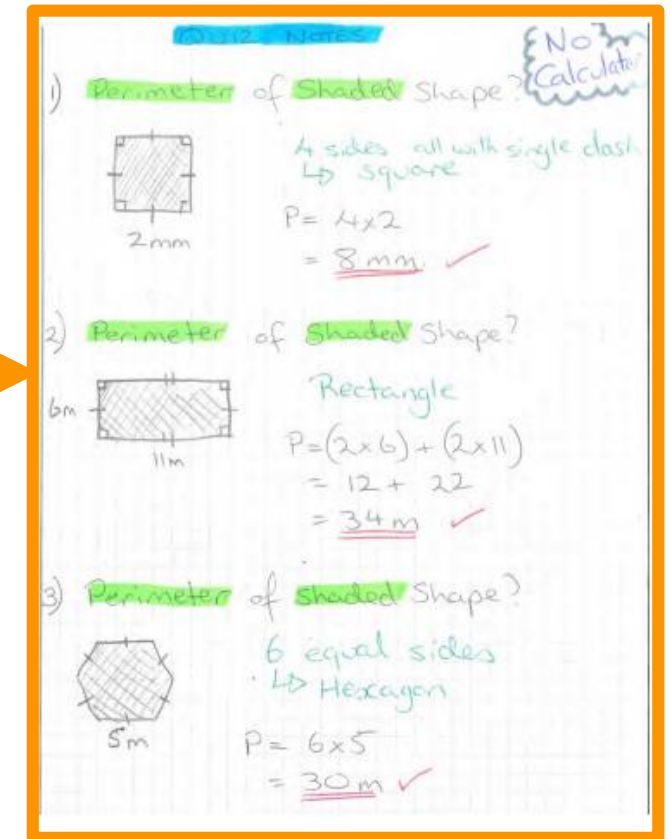 QUIZ NOTES
No
Calculator
1) Perimeter of Shaded Shape?
4 sides all with single dash
↳ square
2mm
P= 4x2
= 8 mm ✓
2) Perimeter of Shaded Shape?
Rectangle
6m
11m
P=(2x6) + (2x11)
= 12 + 22
= 34 m ✓
3) Perimeter of shaded Shape?
6 equal sides
↳ Hexagon
5m
P= 6x5
= 30 m ✓